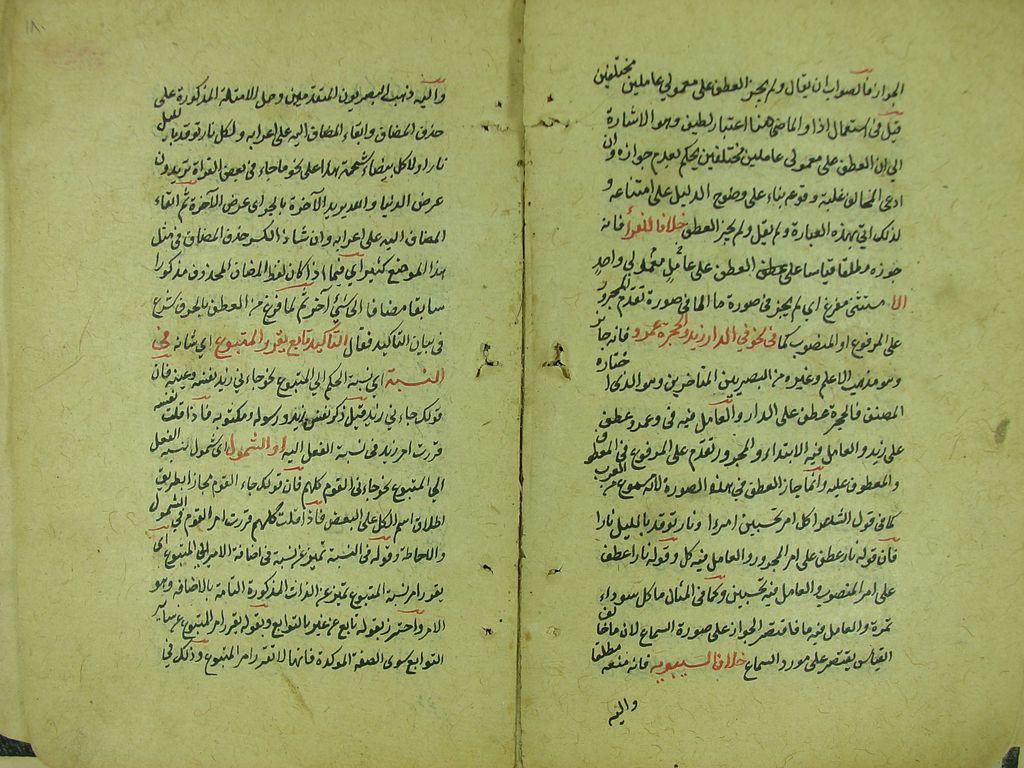 الجواز فالصواب ان يقال ولم يجز العطف على معمولي عاملين مختلفين
قيل في استعمال اذا والماضي هنا اعتبار لطيف وهو الاشارة
الى ان العطف على معمولي عاملين مختلفين يحكم بعدم جوازه وان
ادعى المخالف غلبة وقوعه بناء على وضوح الدليل على امتناعه و
لذلك اتى بهذه العبارة ولم يقل ولم يجز العطف خلافا للفراء فانه
جوزه مطلقا قياسا على عطف على عامل معمولي واحد
الا مستثنى مفرغ اي لم يجز في صورة ما الا في صورة تقدم المجرور
على المرفوع او المنصوب كما في نحو في الدار زيد والحجرة عمرو فانه جائز
وهو مذهب الاعلم وغيره من البصريين المتأخرين وهو الذي اختاره
المصنف فالحجرة عطف على الدار والعامل فيه في وعمرو عطف
على زيد والعامل فيه الابتداء والمجرور تقدم على المرفوع في المعطوف
والمعطوف عليه وانما جاز العطف في هذه الصورة لانه مسموع من العرب
كما في قول الشاعر اكل امرء تحسبين امرءا ونار توقد بالليل نارا
فان قوله نار عطف على امرء المجرور والعامل فيه كل وقوله نارا عطف
على امرء المنصوب والعامل فيه تحسبين وكما في المثال ما كل سوداء
تمرة والعامل فيه ما فاقتصر الجواز على صورة السماع لان ما خالف
القياس يقتصر على مورد السماع خلافا لسيبويه فانه منعه مطلقا
واليه
واليه ذهب البصريون المتقدمين وحمل الامثلة المذكورة على
حذف المضاف وابقاء المضاف اليه على اعرابه ولكل نار توقد بالليل
نارا ولا كل بيضاء شحمة بهذا على نحو ما جاء في بعض القراة تريدون
عرض الدنيا والله يريد الآخرة بالجر اي عرض الآخرة ثم ابقاء
المضاف اليه على اعرابه وان شاذ الكسر حذف المضاف في مثل
هذا الموضع كثير اي فيما اذا كان لفظ المضاف المحذوف مذكورا
سابقا مضافا الى شيء آخر ثم لما فرغ من العطف بالحرف شرع
في بيان التاكيد فقال التاكيد تابع يقرر امر المتبوع اي شانه في
النسبة اي نسبة الحكم الى المتبوع نحو جاءني زيد نفسه وعينه فان
قولك جاءني زيد قبل ذكر نفسه زيد ورسوله ومكتوبه فاذا قلت نفسه
قررت امر زيد في نسبة الفعل اليه او الشمول اي شمول نسبة الفعل
الى المتبوع نحو جاءني القوم كلهم فان قولك جاء القوم مجازا بطريق
اطلاق اسم الكل على البعض فاذا قلت كلهم قررت امر القوم في الشمول
والاحاطة وقوله في النسبة تمييز عن نسبة في اضافة الامر الى المتبوع اي
يقرر امر نسبة المتبوع تمييز عن الذات المذكورة التامة بالاضافة وهو
الامر واحترز بقوله تابع عن غير التوابع وبقوله يقرر امر المتبوع عن سائر
التوابع سوى الصفة الموكدة فانها لا تقرر امر المتبوع وذلك في